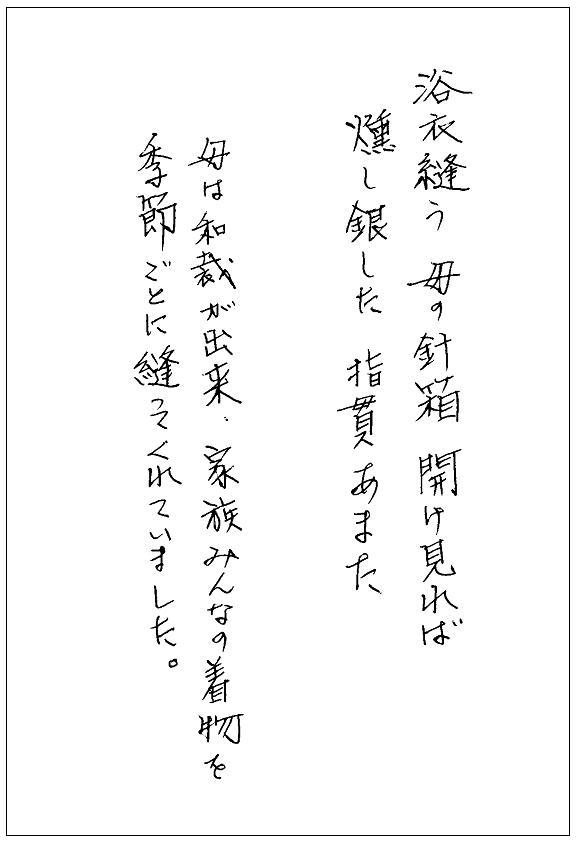 浴衣縫う 母の針箱 開け見れば
燻し銀した 指貫あまた
母は和裁が出来、家族みんなの着物を
季節ごとに縫ってくれていました。